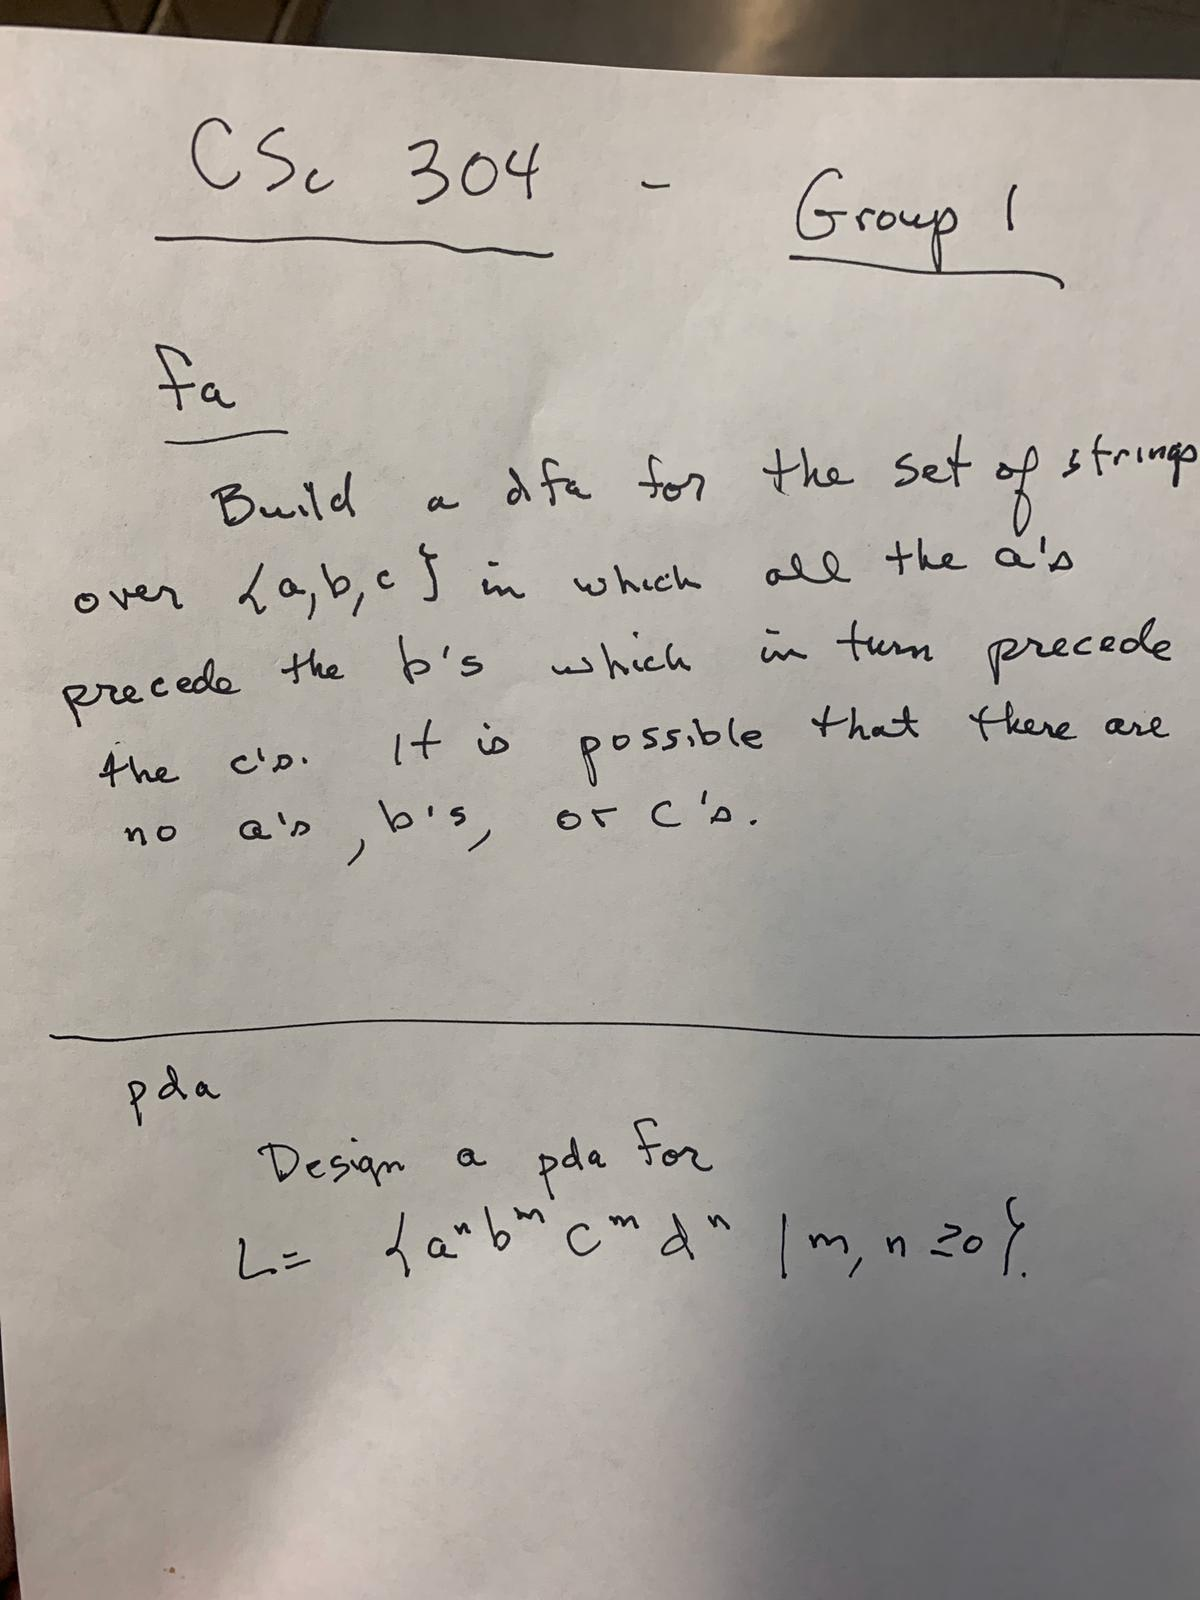 CSc 304 - Group 1
fa
Build a dfa for the set of strings
over {a,b,c} in which all the a's
precede the b's which in turn precede
the c's. It is possible that there are
no a's, b's, or c's.
pda
Design a pda for
L= {aⁿbᵐcᵐdⁿ | m, n ≥0}.